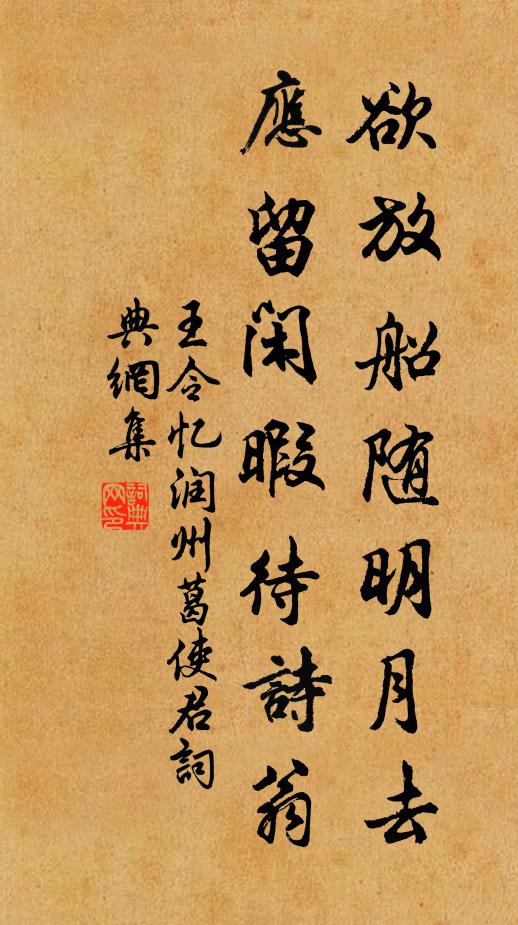 欲放船随明月去
應留閑暇待詩翁
王令忆润州葛使君詞
典網集
詞典
网印